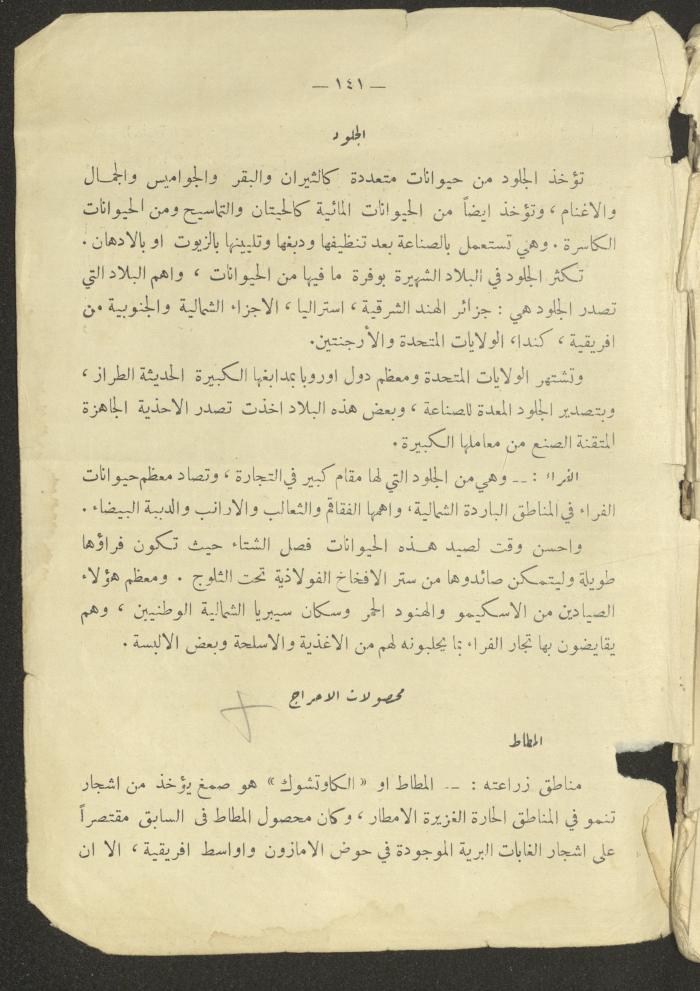 — ١٤١ —
الجلود
تؤخذ الجلود من حيوانات متعددة كالثيران والبقر والجواميس والجمال
والاغنام ، وتؤخذ ايضاً من الحيوانات المائية كالحيتان والتماسيح ومن الحيوانات
الكاسرة . وهي تستعمل بالصناعة بعد تنظيفها ودبغها وتليينها بالزيوت او بالادهان .
تكثر الجلود في البلاد الشهيرة بوفرة ما فيها من الحيوانات ، واهم البلاد التي
تصدر الجلود هي : جزائر الهند الشرقية ، استراليا ، الاجزاء الشمالية والجنوبية من
افريقية ، كندا، الولايات المتحدة والأرجنتين.
وتشتهر الولايات المتحدة ومعظم دول اوروبا بمدابغها الكبيرة الحديثة الطراز ،
وبتصدير الجلود المعدة للصناعة ، وبعض هذه البلاد اخذت تصدر الاحذية الجاهزة
المتقنة الصنع من معاملها الكبيرة .
الفراء : — وهي من الجلود التي لها مقام كبير في التجارة ، وتصاد معظم حيوانات
الفراء في المناطق الباردة الشمالية، واهمها الفقاقم والثعالب والارانب والدببة البيضاء .
واحسن وقت لصيد هذه الحيوانات فصل الشتاء حيث تكون فراؤها
طويلة وليتمكن صائدوها من ستر الافخاخ الفولاذية تحت الثلوج . ومعظم هؤلاء
الصيادين من الاسكيمو والهنود الحمر وسكان سيبريا الشمالية الوطنيين ، وهم
يقايضون بها تجار الفراء بما يجلبونه لهم من الاغذية والاسلحة وبعض الالبسة .
محصولات الاحراج
المطاط
مناطق زراعته : — المطاط او «الكاوتشوك» هو صمغ يؤخذ من اشجار
تنمو في المناطق الحارة الغزيرة الامطار ، وكان محصول المطاط في السابق مقتصراً
على اشجار الغابات البرية الموجودة في حوض الامازون واواسط افريقية ، الا ان